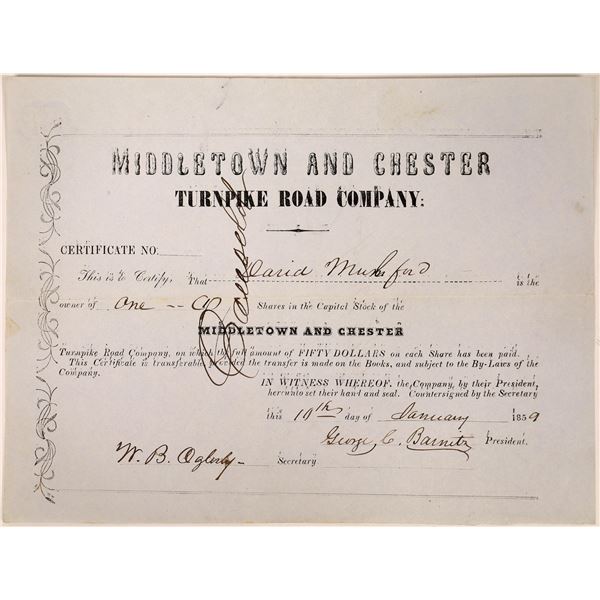 MIDDLETOWN AND CHESTER
TURNPIKE ROAD COMPANY:
CERTIFICATE NO.
This is to Certify, That David Mumford is the
owner of One Shares in the Capital Stock of the
MIDDLETOWN AND CHESTER
Turnpike Road Company, on which the full amount of FIFTY DOLLARS on each Share has been paid.
This Certificate is transferable, provided the transfer is made on the Books, and subject to the By-Laws of the
Company.
IN WITNESS WHEREOF, the Company, by their President,
hereunto set their hand and seal. Countersigned by the Secretary
this 10th day of January 1859
George C. Barnitz President.
W. B. Oglesby Secretary.
Cancelled